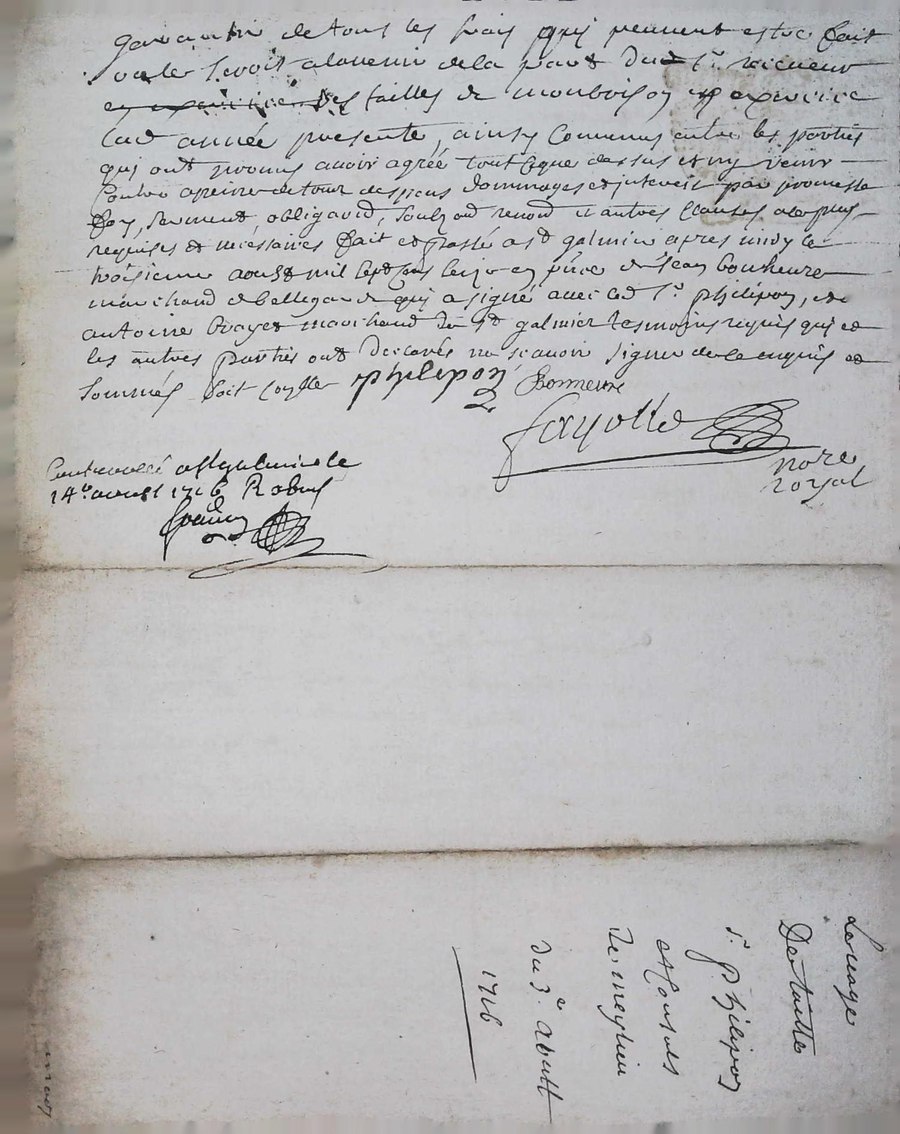 garantir de tous les frais quy peuvent estre fait
a lavenir de la part dud sr receveur
des tailles de montbrison exercice
lad année présente, ainsy convenus entre les parties
quy ont promis avoir agrée tout ce que dessus et ny venir
contre a peine de tous despens dommages et interest par promesse
foy, serment obligaõn, soubz renonõn et autres clauses
requises et nécessaires fait et passé a st galmier apres midy le
troisieme aoust mil sept cens seize en pñce de jean bonheure
marchand de bellegarde quy a signé avec led sr philipon, et
antoine marchand dud st galmier tesmoins requis quy et
les autres parties ont declarés ne scavoir signer de ce enquis et
sommés philipon Bonheure
fayolle
nore
royal
Controollé a st galmier le
14e aoust 1716 R
Louage
De taille
sr philipon
et Consuls
de meylieu
du 3e aoust
1716